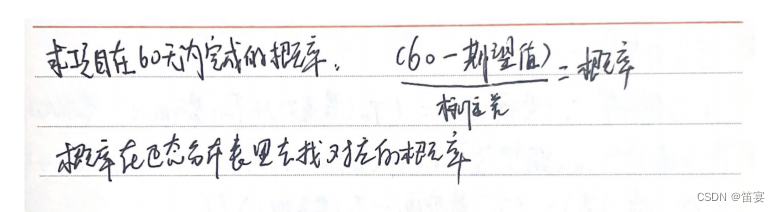 求项目在60天内完成的概率. (60-期望值)/标准差=概率
概率在正态分布表里去找对应的概率
CSDN @笛宴